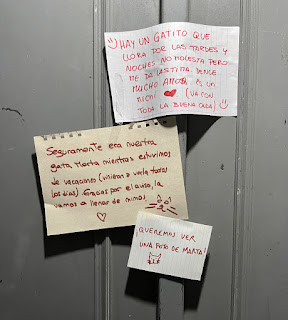 ¡HAY UN GATITO QUE
LLORA POR LAS TARDES Y
NOCHES. NO MOLESTA PERO
ME DA LASTIMA. DENLE
MUCHO AMOR ES UN
MIONI (VA CON
TODA LA BUENA ONDA)
Seguramente era nuestra
gata Marta mientras estuvimos
de vacaciones (vinieron a verla todos
los días) Gracias por el aviso, la
vamos a llenar de mimos.
¡QUEREMOS VER
UNA FOTO DE MARTA!